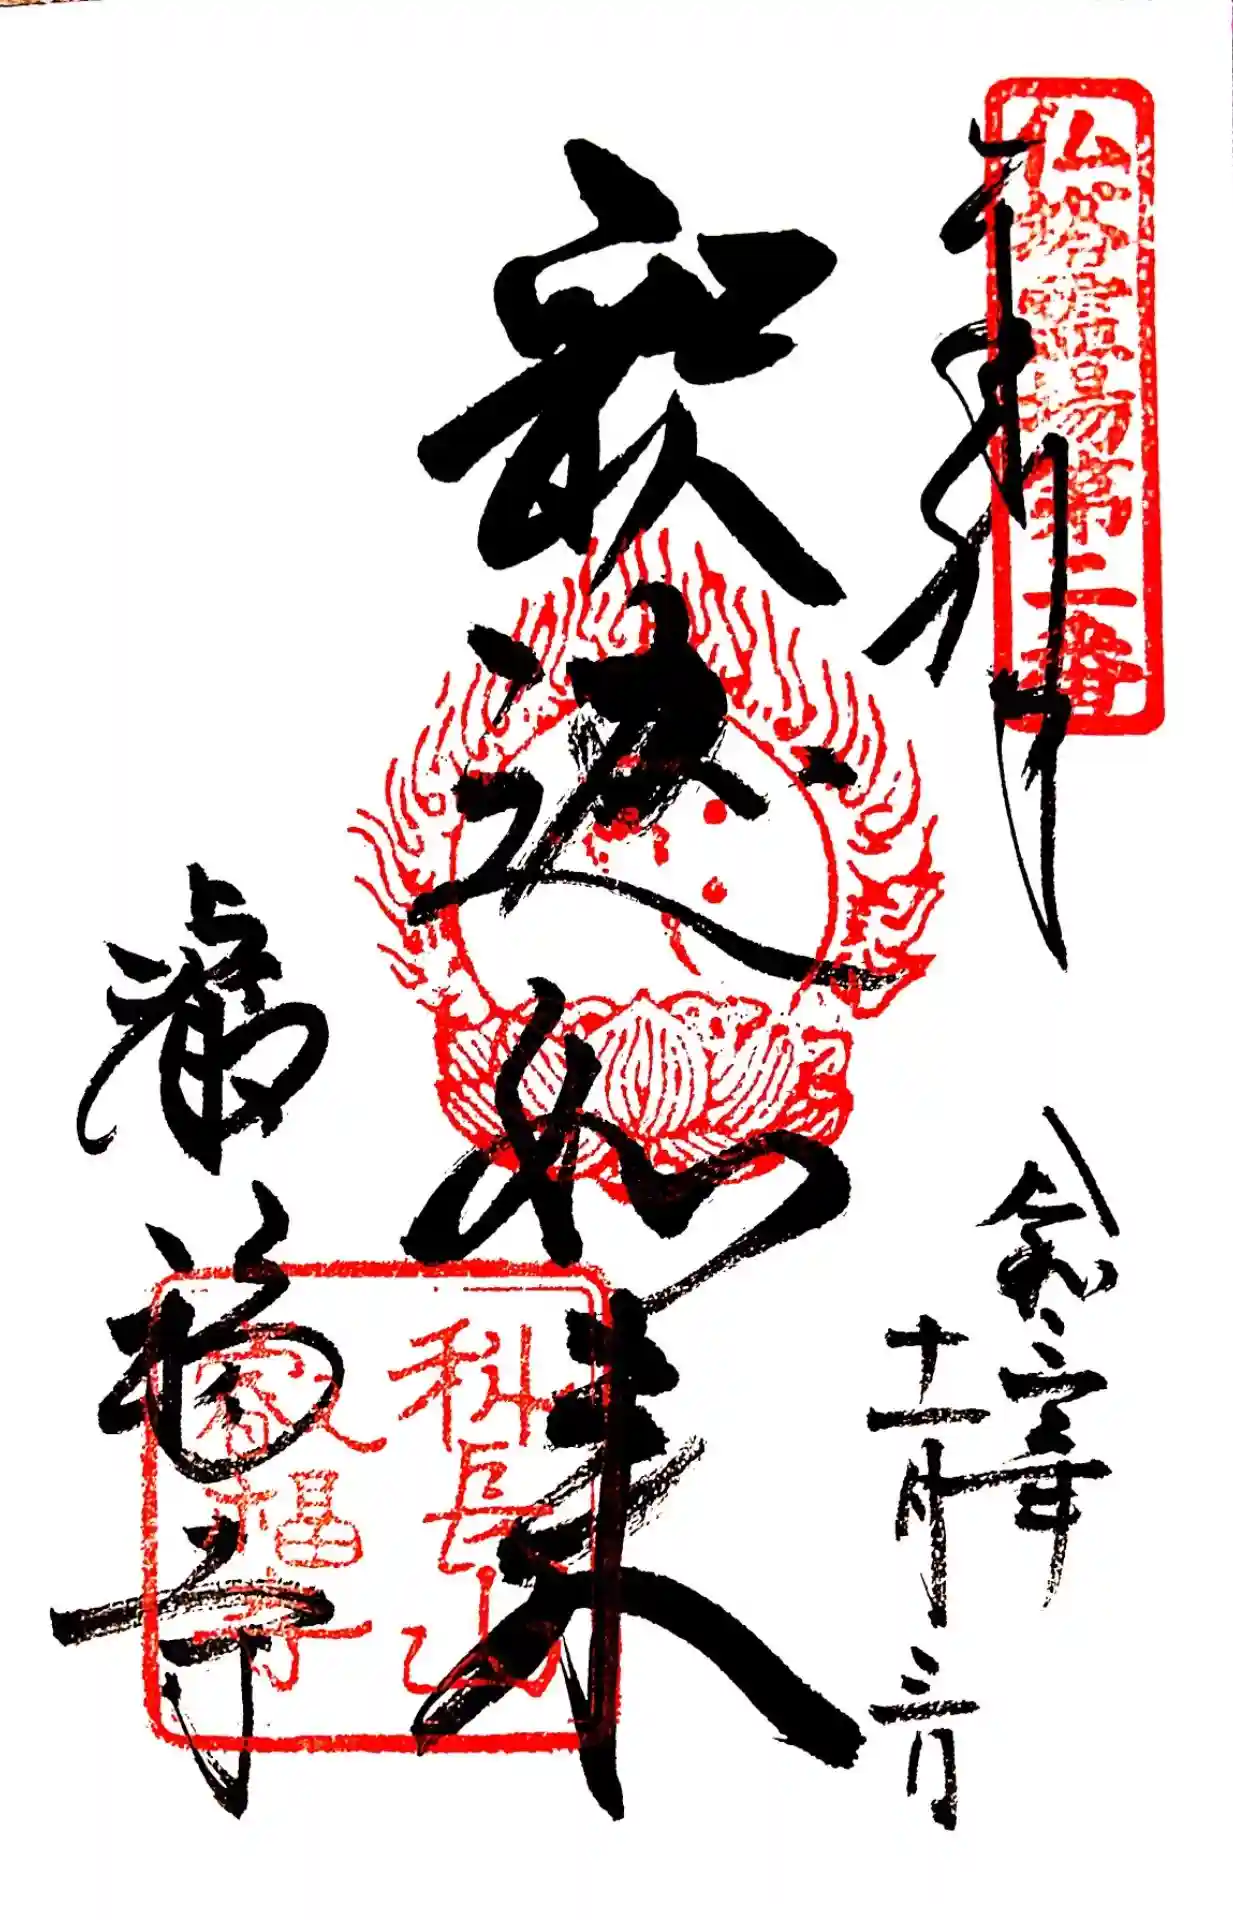 仏塔霊場第二番
奉拝
令和三年
十一月三日
釈迦如来
科長山
叡福寺
叡福寺